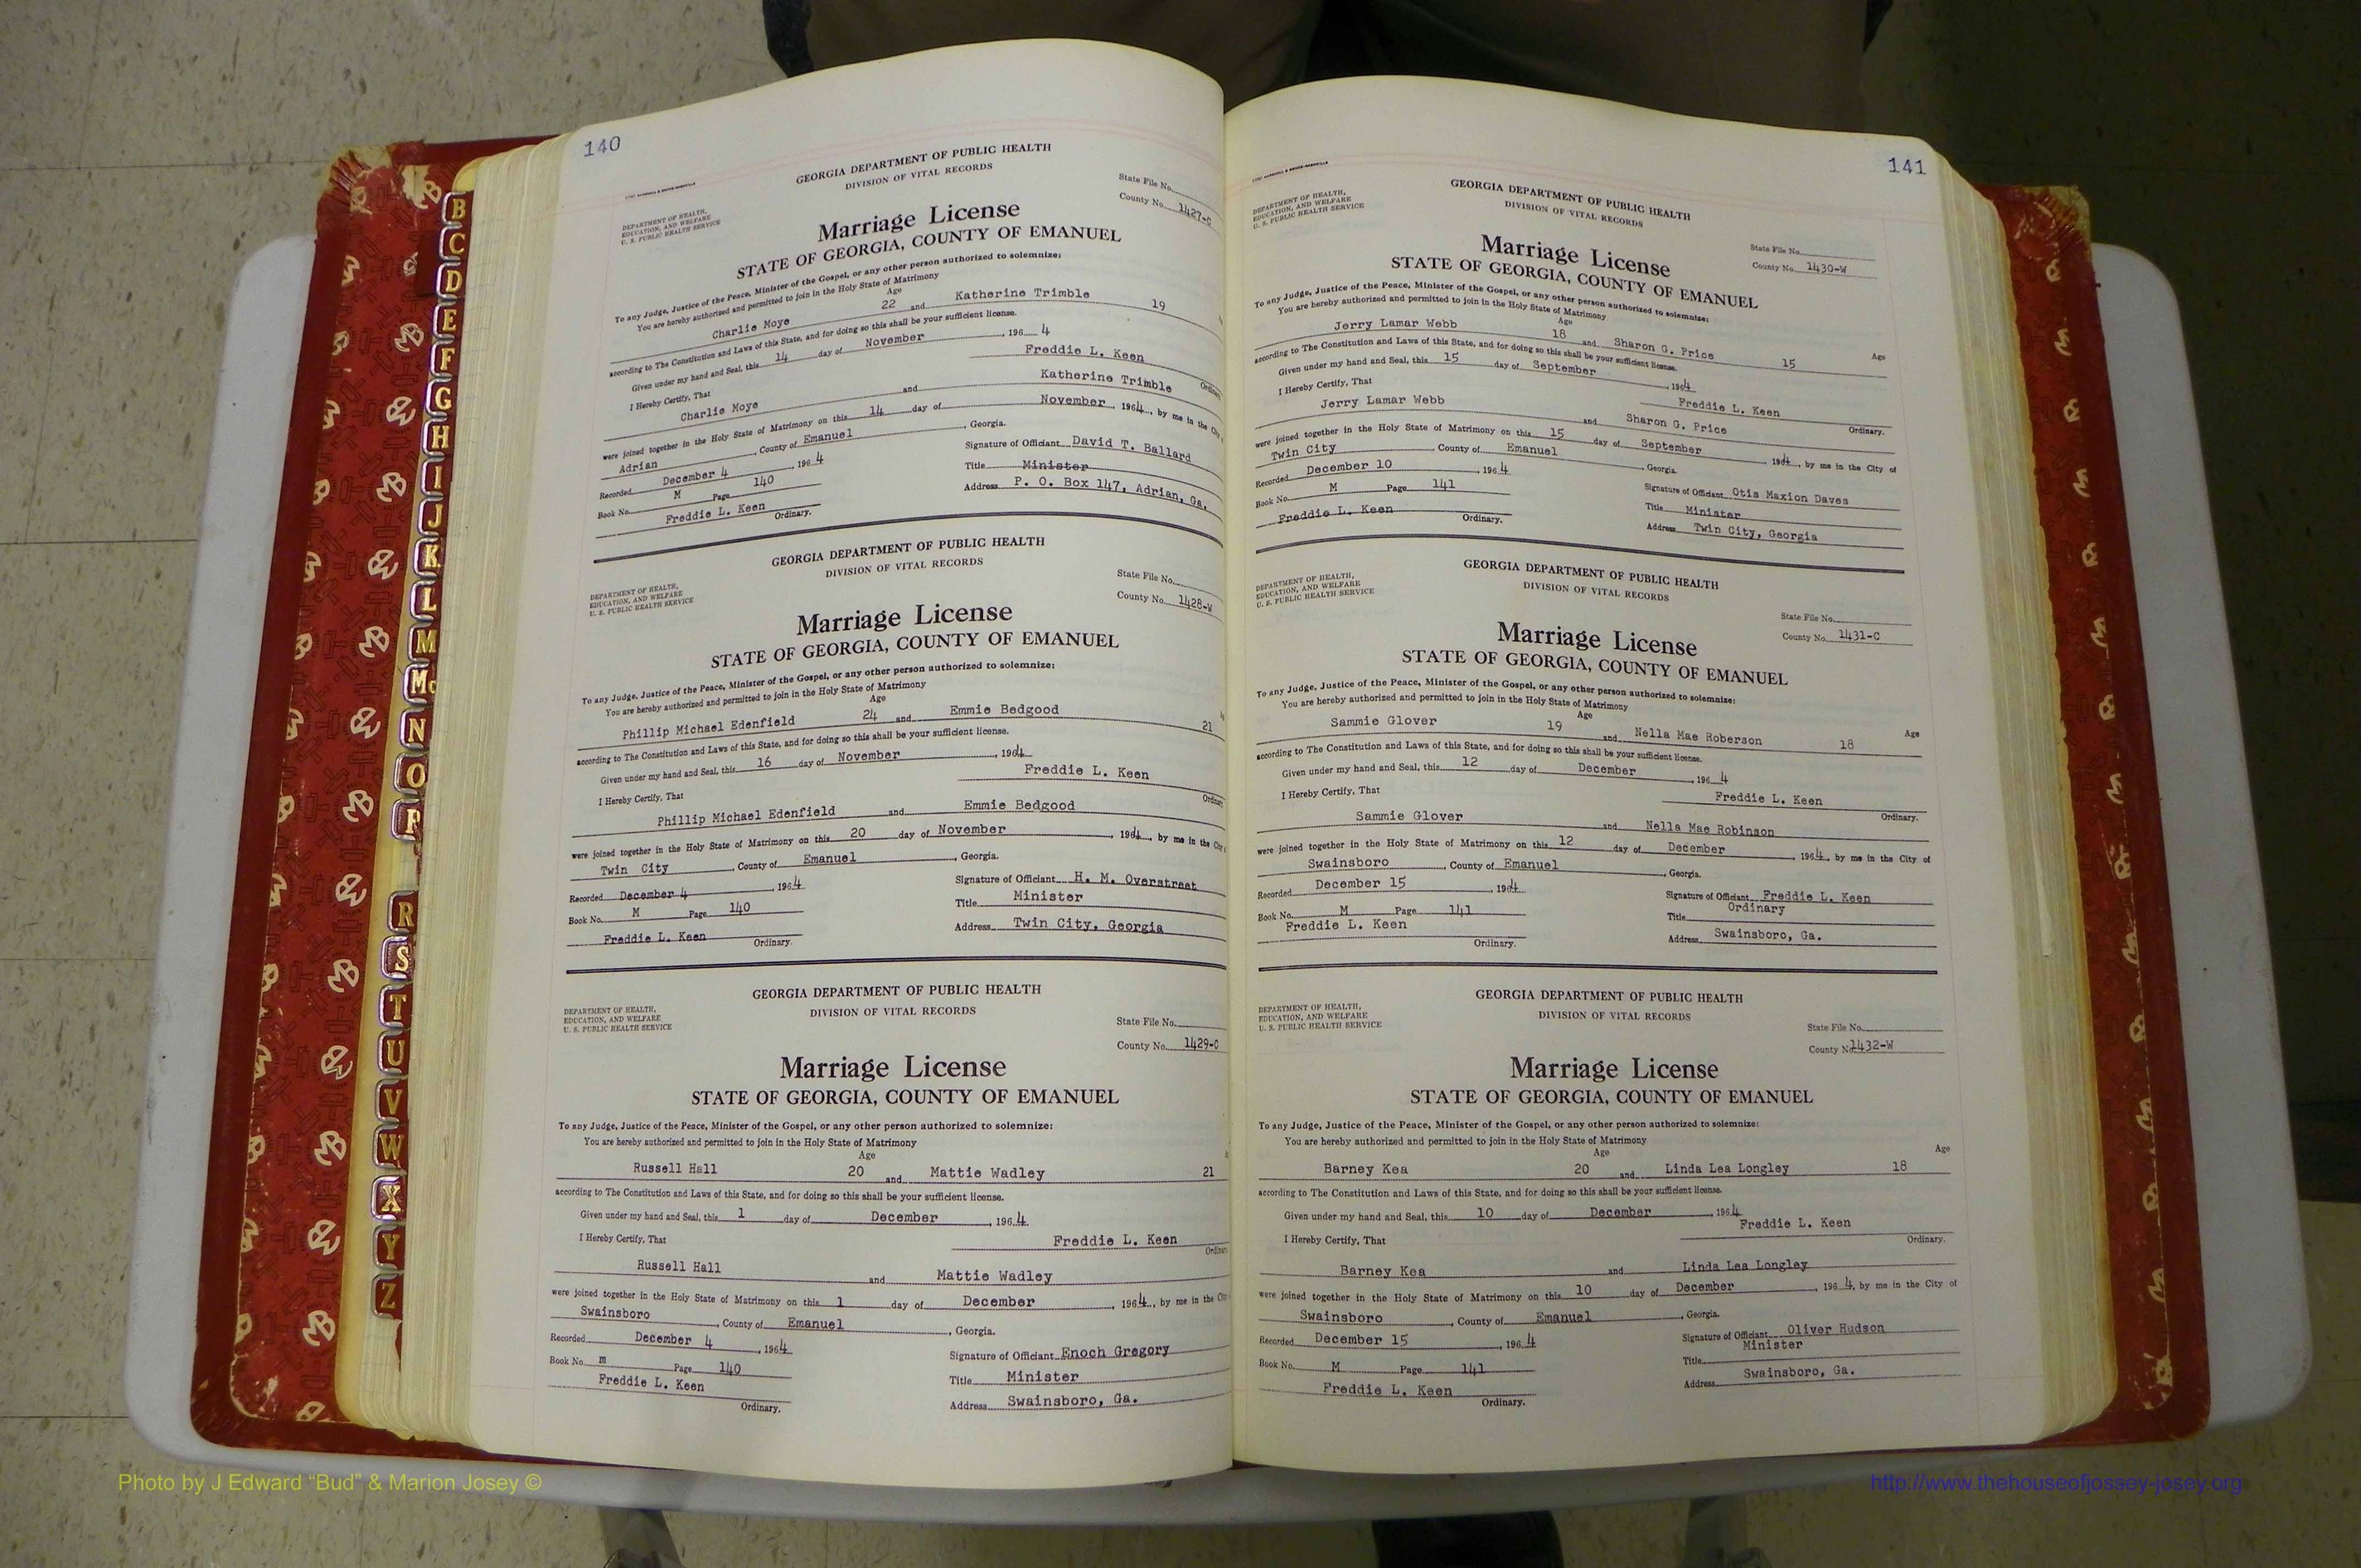 140
GEORGIA DEPARTMENT OF PUBLIC HEALTH
DIVISION OF VITAL RECORDS
DEPARTMENT OF HEALTH,
EDUCATION, AND WELFARE
U. S. PUBLIC HEALTH SERVICE
State File No.
County No. 1427-C
Marriage License
STATE OF GEORGIA, COUNTY OF EMANUEL
To any Judge, Justice of the Peace, Minister of the Gospel, or any other person authorized to solemnize:
You are hereby authorized and permitted to join in the Holy State of Matrimony
Age
Charlie Moye 22 and Katherine Trimble 19
according to The Constitution and Laws of this State, and for doing so this shall be your sufficient license.
Given under my hand and Seal, this 14 day of November, 1964
Freddie L. Keen
I Hereby Certify, That Ordinary
Charlie Moye and Katherine Trimble
were joined together in the Holy State of Matrimony on this 14 day of November, 1964, by me in the City
Adrian, County of Emanuel, Georgia.
Recorded December 4, 1964 Signature of Officiant David T. Ballard
Book No. M Page 140 Title Minister
Freddie L. Keen Address P. O. Box 147, Adrian, Ga.
Ordinary.
GEORGIA DEPARTMENT OF PUBLIC HEALTH
DIVISION OF VITAL RECORDS
DEPARTMENT OF HEALTH,
EDUCATION, AND WELFARE
U. S. PUBLIC HEALTH SERVICE
State File No.
County No. 1428-W
Marriage License
STATE OF GEORGIA, COUNTY OF EMANUEL
To any Judge, Justice of the Peace, Minister of the Gospel, or any other person authorized to solemnize:
You are hereby authorized and permitted to join in the Holy State of Matrimony
Age
Phillip Michael Edenfield 24 and Emmie Bedgood 21
according to The Constitution and Laws of this State, and for doing so this shall be your sufficient license.
Given under my hand and Seal, this 16 day of November, 1964
Freddie L. Keen
I Hereby Certify, That Ordinary
Phillip Michael Edenfield and Emmie Bedgood
were joined together in the Holy State of Matrimony on this 20 day of November, 1964, by me in the City
Twin City, County of Emanuel, Georgia.
Recorded December 4, 1964 Signature of Officiant H. M. Overstreet
Book No. M Page 140 Title Minister
Freddie L. Keen Address Twin City, Georgia
Ordinary.
GEORGIA DEPARTMENT OF PUBLIC HEALTH
DIVISION OF VITAL RECORDS
DEPARTMENT OF HEALTH,
EDUCATION, AND WELFARE
U. S. PUBLIC HEALTH SERVICE
State File No.
County No. 1429-C
Marriage License
STATE OF GEORGIA, COUNTY OF EMANUEL
To any Judge, Justice of the Peace, Minister of the Gospel, or any other person authorized to solemnize:
You are hereby authorized and permitted to join in the Holy State of Matrimony
Age
Russell Hall 20 and Mattie Wadley 21
according to The Constitution and Laws of this State, and for doing so this shall be your sufficient license.
Given under my hand and Seal, this 1 day of December, 1964
I Hereby Certify, That Freddie L. Keen
Ordinary
Russell Hall and Mattie Wadley
were joined together in the Holy State of Matrimony on this 1 day of December, 1964, by me in the City
Swainsboro, County of Emanuel, Georgia.
Recorded December 4, 1964 Signature of Officiant Enoch Gregory
Book No. m Page 140 Title Minister
Freddie L. Keen Address Swainsboro, Ga.
Ordinary.
141
GEORGIA DEPARTMENT OF PUBLIC HEALTH
DIVISION OF VITAL RECORDS
DEPARTMENT OF HEALTH,
EDUCATION, AND WELFARE
U. S. PUBLIC HEALTH SERVICE
State File No.
County No. 1430-W
Marriage License
STATE OF GEORGIA, COUNTY OF EMANUEL
To any Judge, Justice of the Peace, Minister of the Gospel, or any other person authorized to solemnize:
You are hereby authorized and permitted to join in the Holy State of Matrimony
Age Age
Jerry Lamar Webb 18 and Sharon G. Price 15
according to The Constitution and Laws of this State, and for doing so this shall be your sufficient license.
Given under my hand and Seal, this 15 day of September, 1964
I Hereby Certify, That Freddie L. Keen
Ordinary.
Jerry Lamar Webb and Sharon G. Price
were joined together in the Holy State of Matrimony on this 15 day of September 1964, by me in the City of
Twin City, County of Emanuel, Georgia.
Recorded December 10, 1964 Signature of Officiant Otis Maxion Daves
Book No. M Page 141 Title Minister
Freddie L. Keen Address Twin City, Georgia
Ordinary.
GEORGIA DEPARTMENT OF PUBLIC HEALTH
DIVISION OF VITAL RECORDS
DEPARTMENT OF HEALTH,
EDUCATION, AND WELFARE
U. S. PUBLIC HEALTH SERVICE
State File No.
County No. 1431-C
Marriage License
STATE OF GEORGIA, COUNTY OF EMANUEL
To any Judge, Justice of the Peace, Minister of the Gospel, or any other person authorized to solemnize:
You are hereby authorized and permitted to join in the Holy State of Matrimony
Age Age
Sammie Glover 19 and Nella Mae Roberson 18
according to The Constitution and Laws of this State, and for doing so this shall be your sufficient license.
Given under my hand and Seal, this 12 day of December, 1964
I Hereby Certify, That Freddie L. Keen
Ordinary.
Sammie Glover and Nella Mae Robinson
were joined together in the Holy State of Matrimony on this 12 day of December, 1964, by me in the City of
Swainsboro, County of Emanuel, Georgia.
Recorded December 15, 1964 Signature of Officiant Freddie L. Keen
Book No. M Page 141 Title Ordinary
Freddie L. Keen Address Swainsboro, Ga.
Ordinary.
GEORGIA DEPARTMENT OF PUBLIC HEALTH
DIVISION OF VITAL RECORDS
DEPARTMENT OF HEALTH,
EDUCATION, AND WELFARE
U. S. PUBLIC HEALTH SERVICE
State File No.
County No. 1432-W
Marriage License
STATE OF GEORGIA, COUNTY OF EMANUEL
To any Judge, Justice of the Peace, Minister of the Gospel, or any other person authorized to solemnize:
You are hereby authorized and permitted to join in the Holy State of Matrimony
Age Age
Barney Kea 20 and Linda Lea Longley 18
according to The Constitution and Laws of this State, and for doing so this shall be your sufficient license.
Given under my hand and Seal, this 10 day of December, 1964
Freddie L. Keen
I Hereby Certify, That Ordinary.
Barney Kea and Linda Lea Longley
were joined together in the Holy State of Matrimony on this 10 day of December, 1964, by me in the City of
Swainsboro, County of Emanuel, Georgia.
Recorded December 15, 1964 Signature of Officiant Oliver Hudson
Book No. M Page 141 Title Minister
Freddie L. Keen Address Swainsboro, Ga.
Ordinary.
B
C
D
E
F
G
H
I
J
K
L
M
Mc
N
O
P
R
S
T
U
V
W
X
Y
Z
Photo by J Edward “Bud” & Marion Josey ©
http://www.thehouseofjossey-josey.org